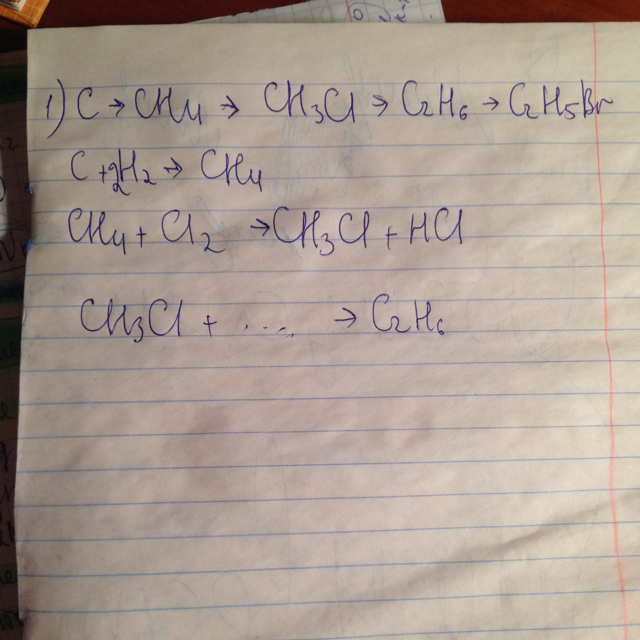 1) C → CH4 → CH3Cl → C2H6 → C2H5Br
C + 2H2 → CH4
CH4 + Cl2 → CH3Cl + HCl
CH3Cl + ..... → C2H6